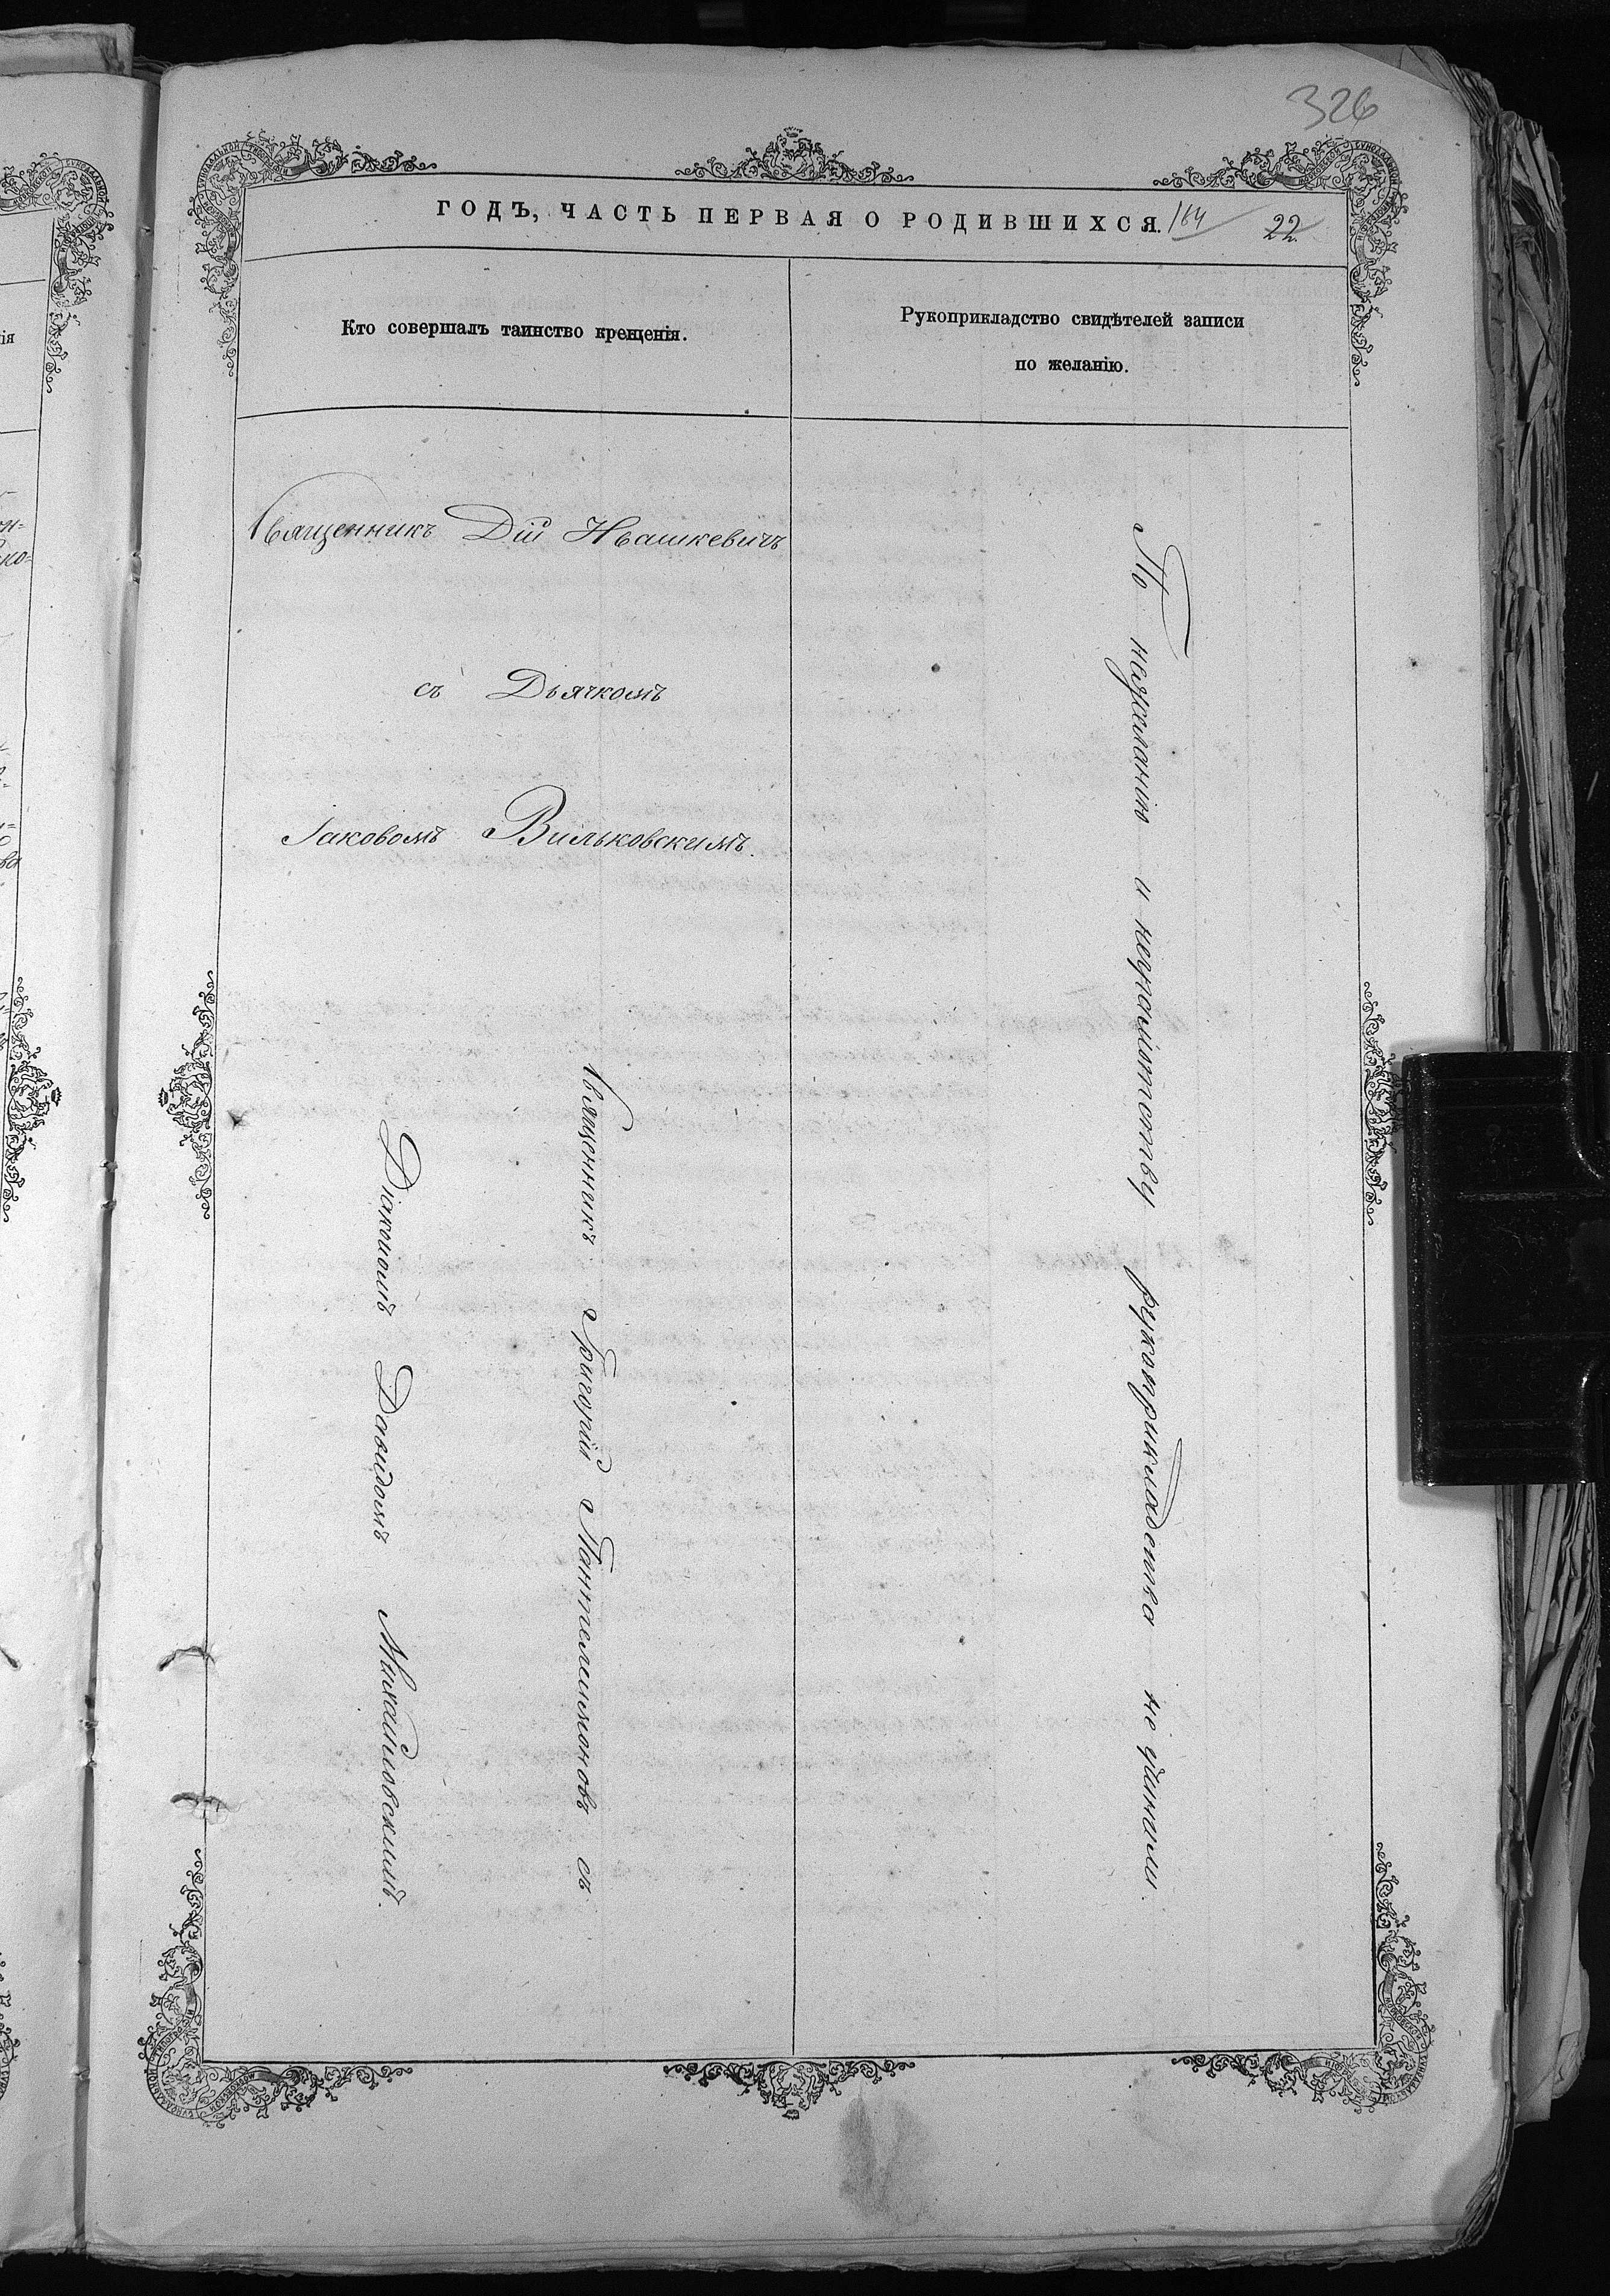 326
ГОДЪ, ЧАСТЬ ПЕРВАЯ О РОДИВШИХСЯ. 164 22.
Кто совершалъ таинство крещенія.
Рукоприкладство свидѣтелей записи
по желанію.
Священникъ Дій Ивашкевичъ
съ Дьячкомъ
Іаковомъ Вильковскимъ.
Священникъ Григорій Пантелеимоновъ съ
Діакономъ Давидомъ Михайловскимъ.
По нежеланію и неграмотству рукоприкладства не учинили.